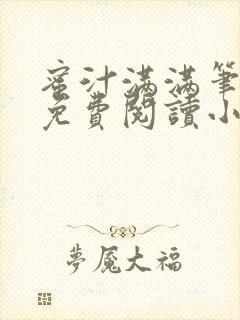 蜜汁满满筆
免費閱讀小
夢魘大福